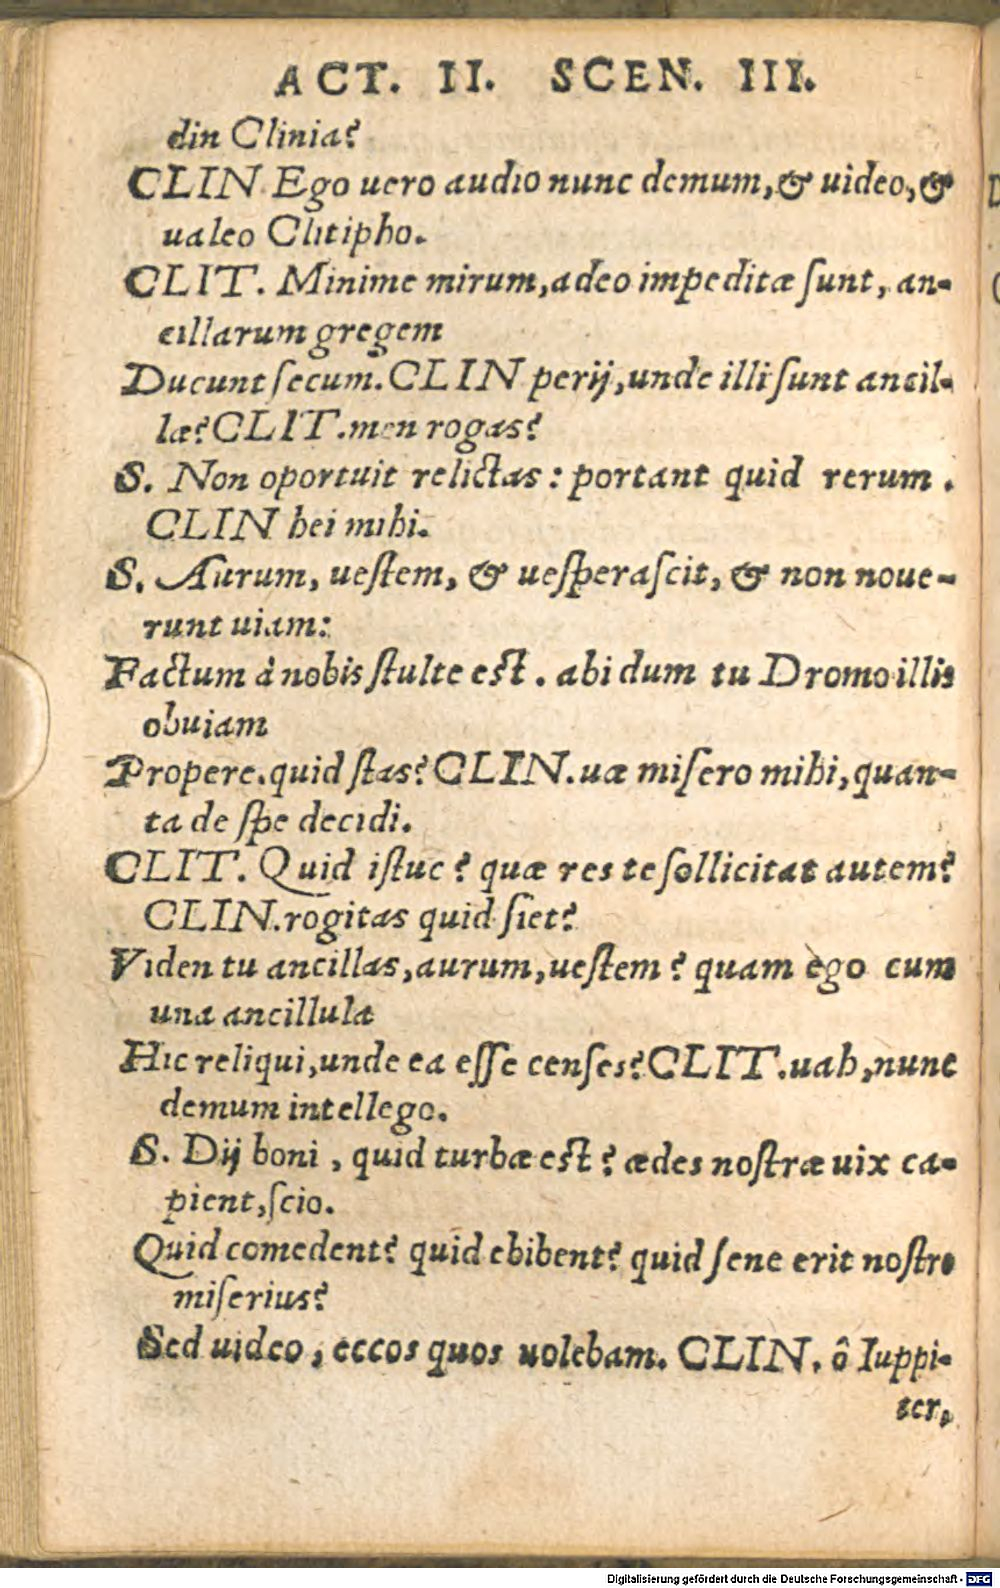 ACT. II. SCEN. III.
din Clinia?
CLIN Ego uero audio nunc demum, & uideo, &
ualeo Clitipho.
CLIT. Minime mirum, adeo impeditæ ſunt, an-
cillarum gregem
Ducunt ſecum. CLIN perij, unde illi ſunt ancil-
læ? CLIT. men rogas?
S. Non oportuit relictas: portant quid rerum.
CLIN hei mihi.
S. Aurum, ueſtem, & ueſperaſcit, & non noue-
runt uiam:
Factum à nobis ſtulte eſt. abi dum tu Dromo illis
obuiam
Propere. quid ſtas? CLIN. uæ miſero mihi, quan-
ta de ſpe decidi.
CLIT. Quid iſtuc? quæ res te ſollicitat autem?
CLIN. rogitas quid ſiet?
Viden tu ancillas, aurum, ueſtem? quam ego cum
una ancillula
Hic reliqui, unde ea eſſe cenſes? CLIT. uah, nunc
demum intellego.
S. Dij boni, quid turbæ eſt? ædes noſtræ uix ca-
pient, ſcio.
Quid comedent? quid ebibent? quid ſene erit noſtro
miſerius?
Sed uideo, eccos quos uolebam. CLIN. ô Iuppi-
ter,
Digitalisierung gefördert durch die Deutsche Forschungsgemeinschaft - DFG